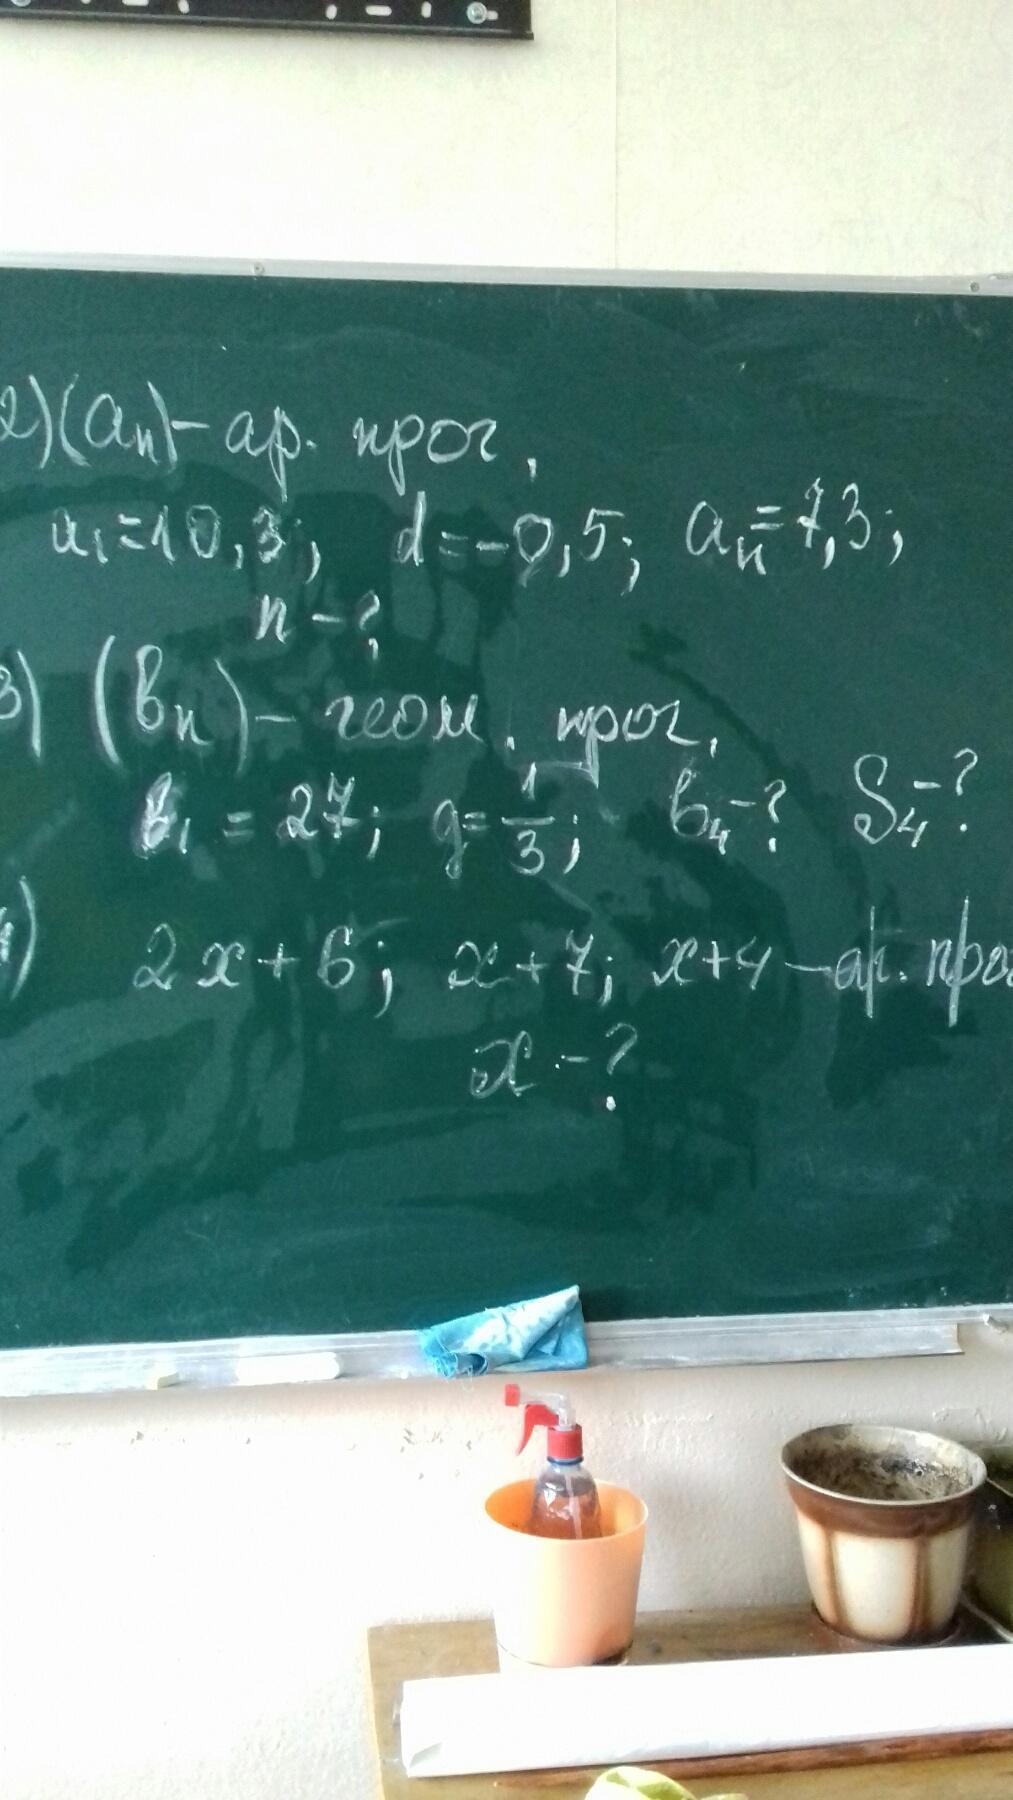 2) (aₙ) - ар. прог.
a₁ = 10,3; d = -0,5; aₙ = 7,3;
n - ?
3) (bₙ) - геом. прог.
b₁ = 27; g = 1/3; b₄ - ? S₄ - ?
4) 2x + 6; x + 7; x + 4 - ар. прог
x - ?